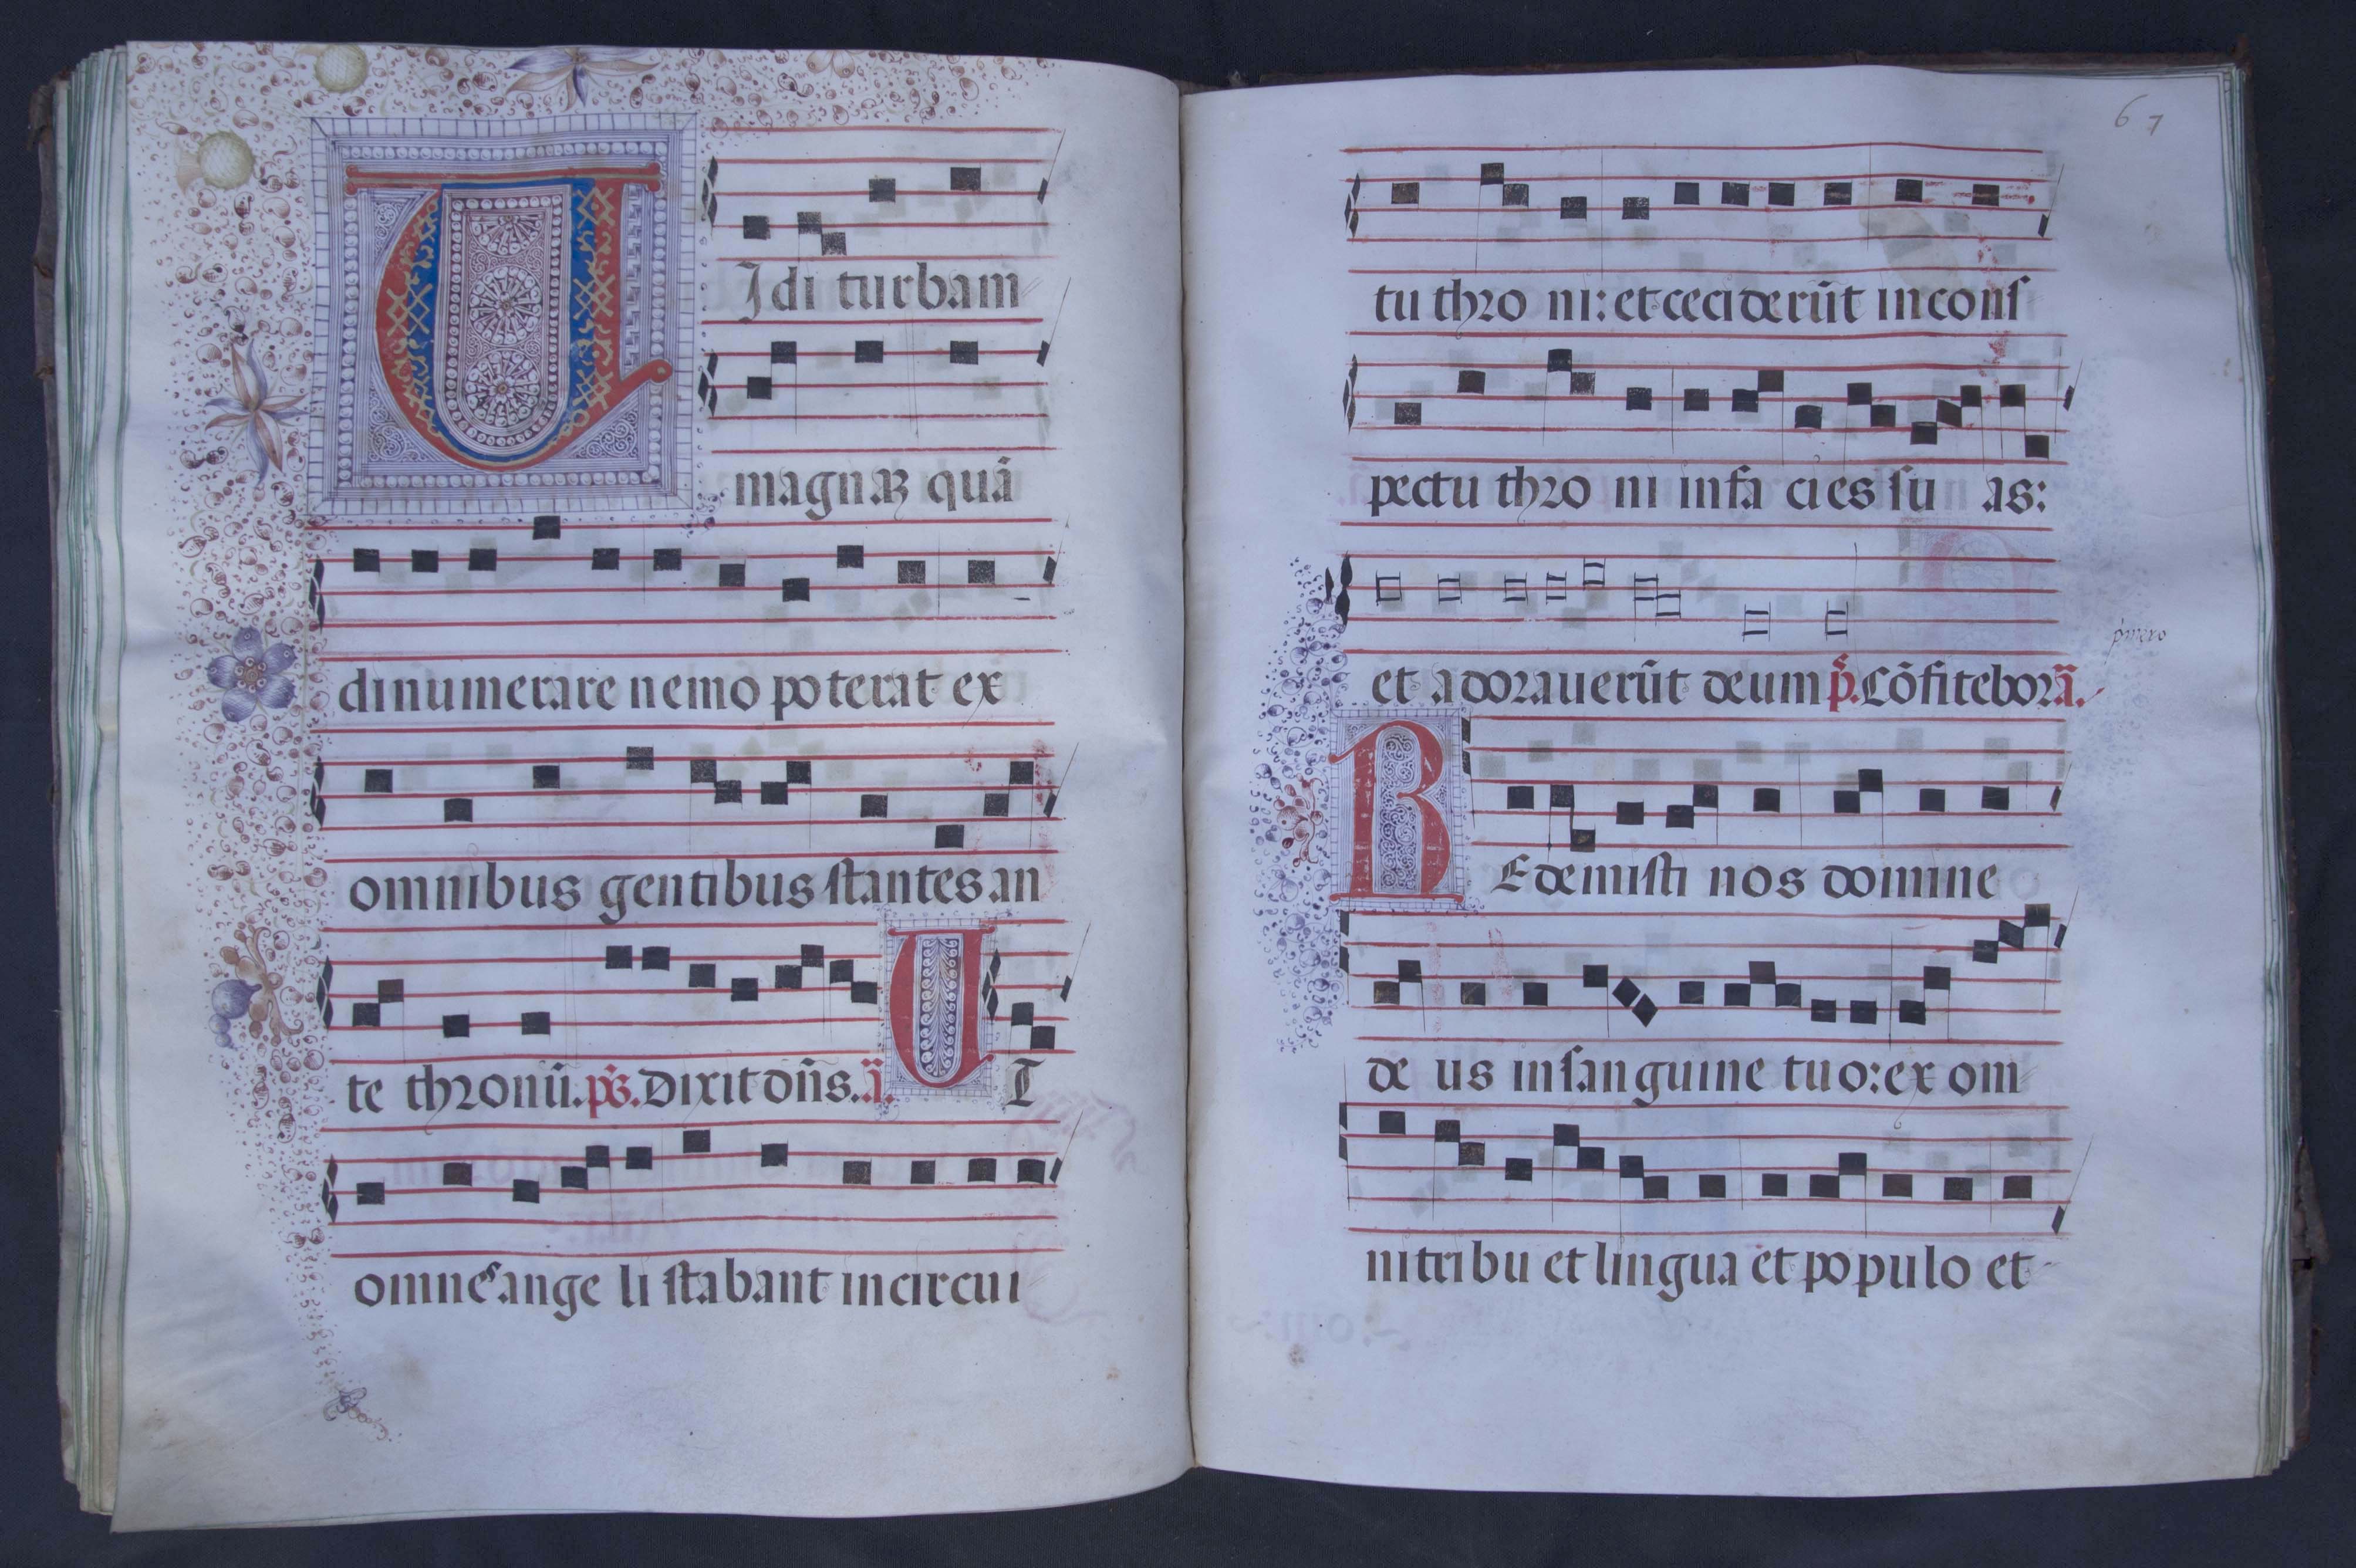 UIdi turbam
magnaꝫ quā
dinumerare nemo poterat ex
omnibus gentibus ſtantes an
te thronū. ps̄. Dixit dn̄s. ā. UT
omnes ange li ſtabant in circui
67
tu thro ni: et ceciderūt in conſ
pectu thro ni in fa cies ſu as:
et adorauerūt deum p̄s. Cōfitebor ā.
primero
REdemiſti nos domine
de us in ſanguine tuo: ex om
ni tribu et lingua et populo et